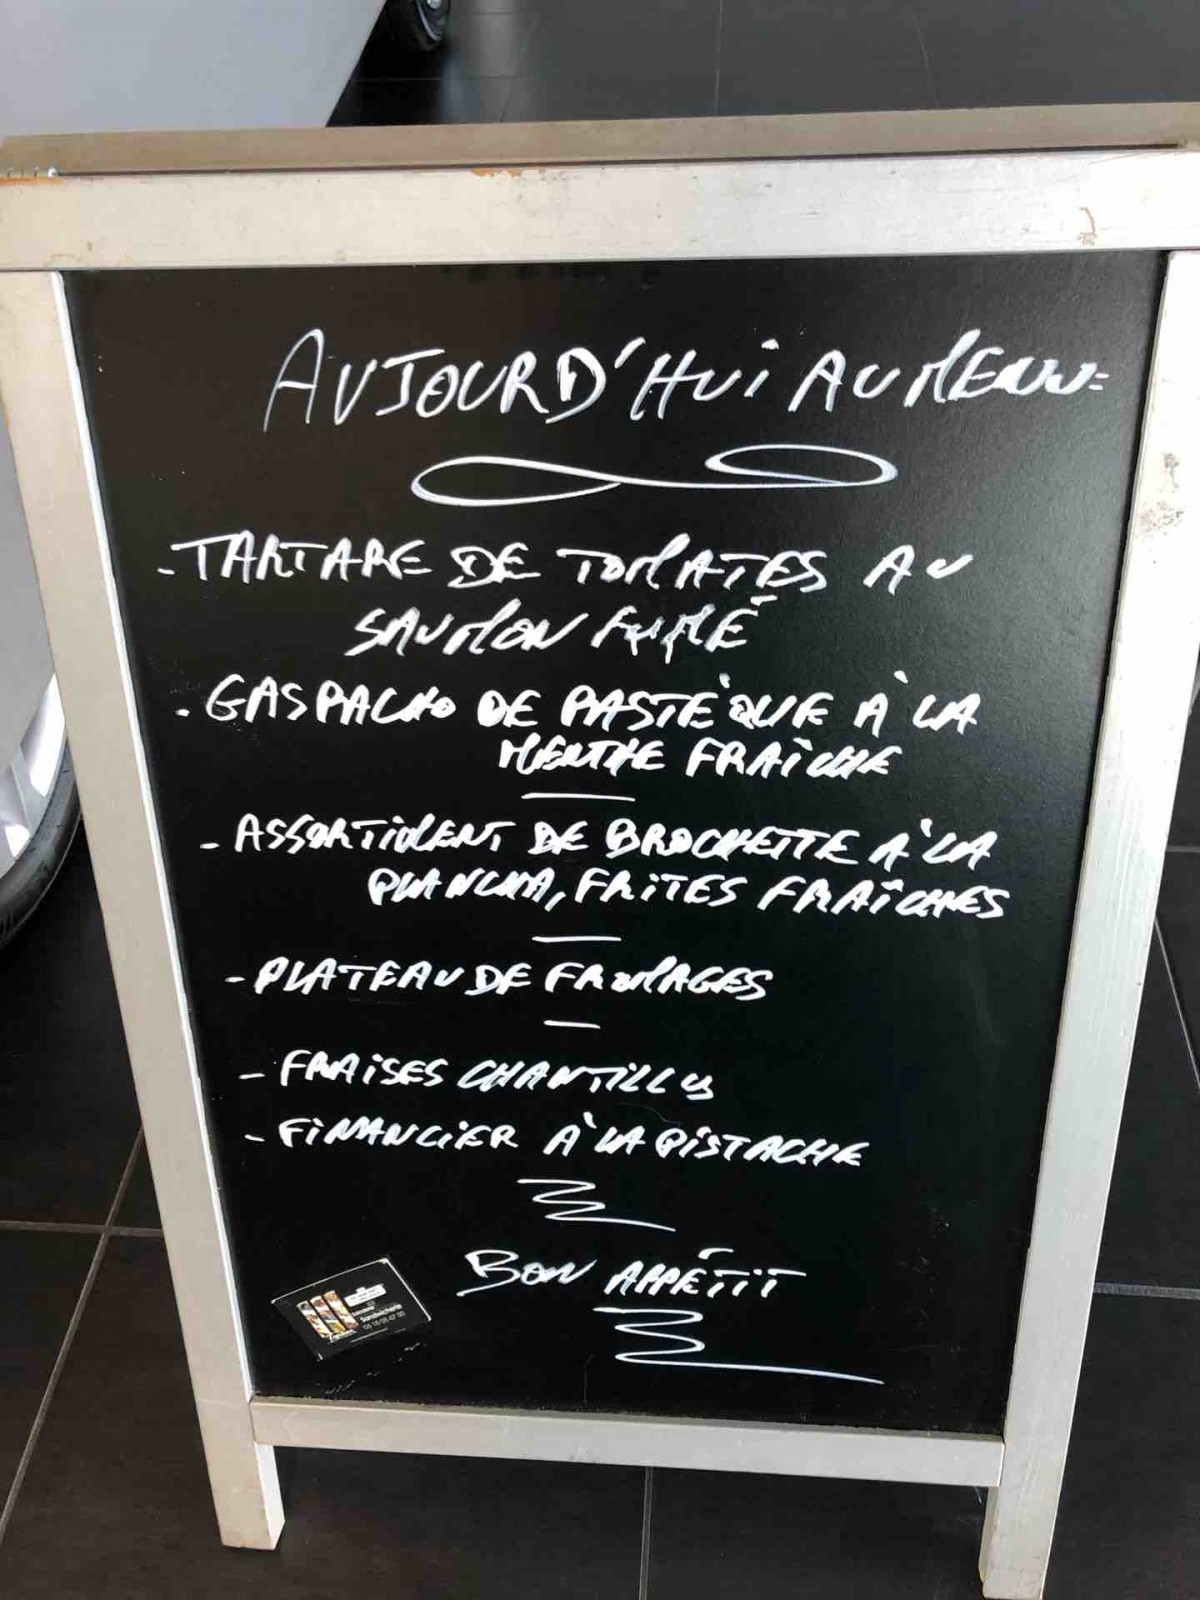 AUJOURD'HUI AU MENU=
- TARTARE DE TOMATES AU
SAUMON FUMÉ
- GASPACHO DE PASTÈQUE À LA
MENTHE FRAÎCHE
- ASSORTIMENT DE BROCHETTE À LA
PLANCHA, FRITES FRAÎCHES
- PLATEAU DE FROMAGES
- FRAISES CHANTILLY
- FINANCIER À LA PISTACHE
BON APPÉTIT
Sandwicherie